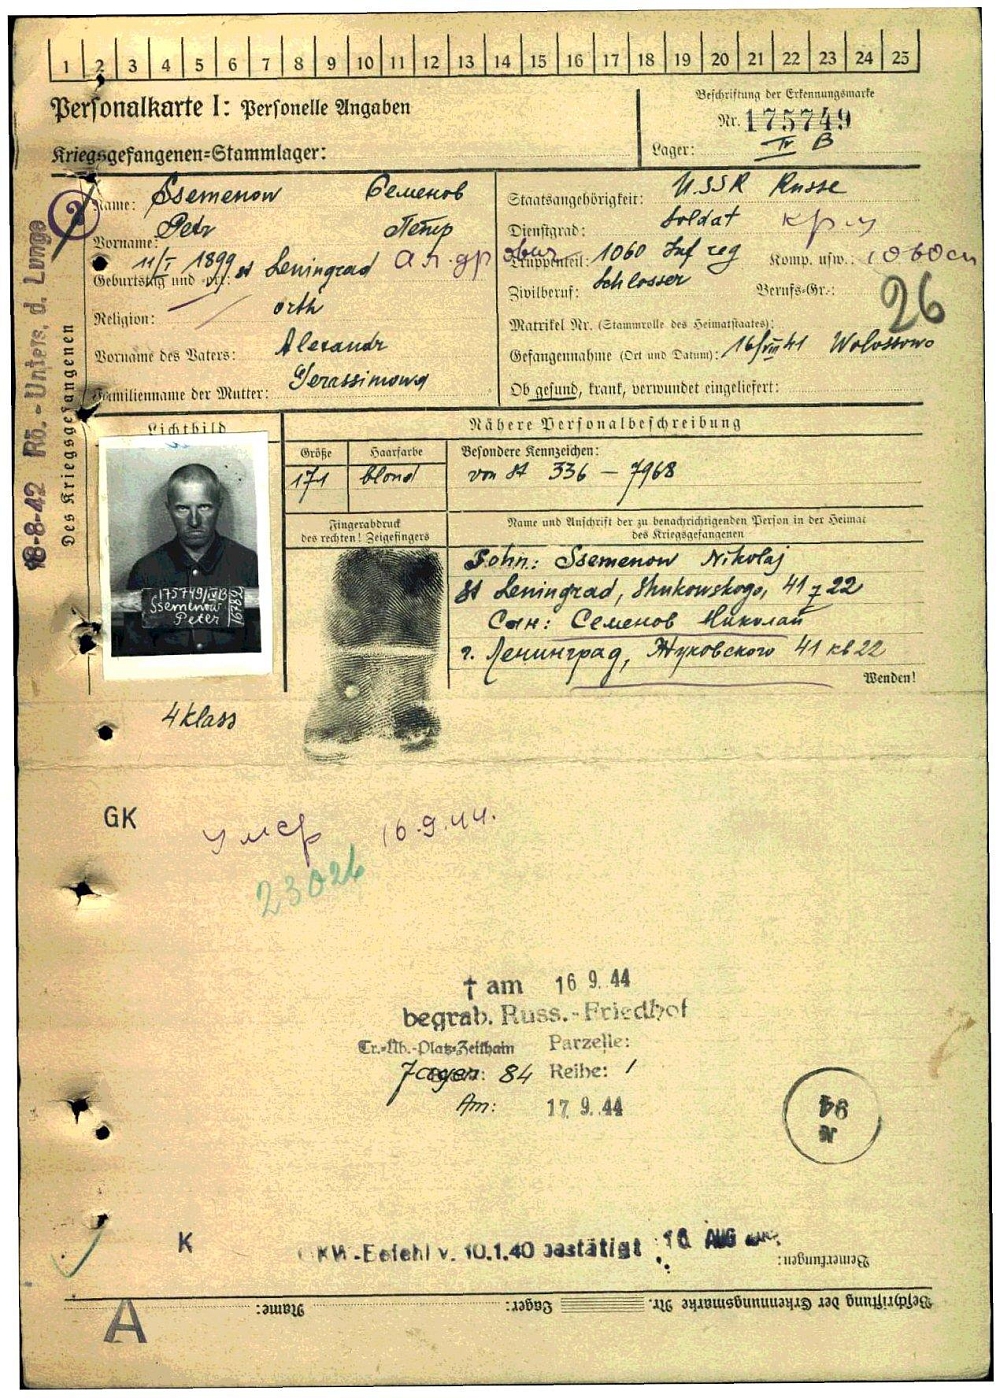 1 2 3 4 5 6 7 8 9 10 11 12 13 14 15 16 17 18 19 20 21 22 23 24 25
Personalkarte I: Personelle Angaben
Beschriftung der Erkennungsmarke
Nr. 175749
Kriegsgefangenen=Stammlager:
Lager: IV B
Des Kriegsgefangenen
18-8-42 Rö.-Unters. d. Lunge
2
Name: Ssemenow Семенов
Vorname: Petr Петр
Geburtstag und =ort: 11/I 1899 st Leningrad
Religion: orth
Vorname des Vaters: Alexandr
Familienname der Mutter: Gerassimowa
Staatsangehörigkeit: USSR Russe
Dienstgrad: Soldat
Truppenteil: 1060 Inf reg Komp. usw.: 1060 сп
Zivilberuf: Schlosser Berufs-Gr.:
26
Matrikel Nr. (Stammrolle des Heimatstaates):
Gefangennahme (Ort und Datum): 16/VIII 41 Wolossowo
Ob gesund, krank, verwundet eingeliefert:
Lichtbild
Nähere Personalbeschreibung
Größe Haarfarbe Besondere Kennzeichen:
171 blond von St 336 – 7968
Fingerabdruck
des rechten! Zeigefingers
Name und Anschrift der zu benachrichtigenden Person in der Heimat
des Kriegsgefangenen
175749/IVB
Ssemenow
Peter
16789
Sohn: Ssemenow Nikolaj
St Leningrad, Shukowskogo, 41 7 22
Сын: Семенов Николай
г. Ленинград, Жуковского 41 кв 22
Wenden!
4 Klass
GK
умер 16.9.44.
23026
† am 16 9. 44
begrab. Russ.-Friedhof
Tr.=Üb.-Platz=Zeithain Parzelle:
Jagen: 84 Reihe: 1
Am: 17 9. 44
K
OKW-Befehl v. 10.1.40 bestätigt 10. AUG
Bemerkungen:
Beschriftung der Erkennungsmarke Nr. Lager: Name:
A